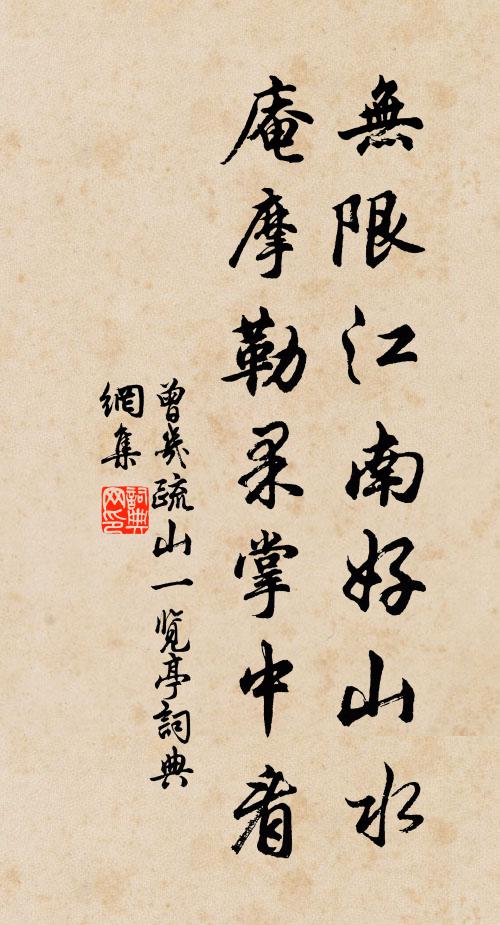 無限江南好山水
庵摩勒果掌中看
曾幾疏山一覽亭詞典
網集
詞典
网印